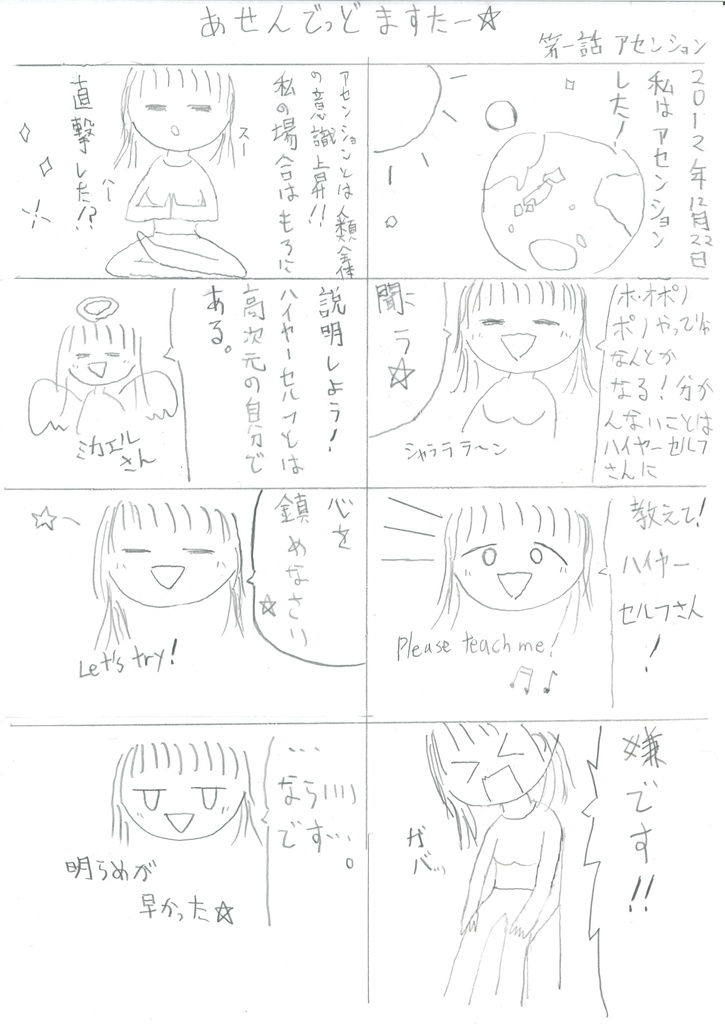 あせんでっどますたー☆
第一話 アセンション
2012年12月22日
私はアセンション
した!
アセンションとは人類全体
の意識上昇!!
私の場合はもろに
直撃した!?
スー
ハー
ホ・オポノ
ポノやってりゃ
なんとか
なる!分か
んないことは
ハイヤーセルフ
さんに
聞こう☆
シャララララ〜ン
説明しよう!
ハイヤーセルフとは
高次元の自分で
ある。
ミカエル
さん
教えて!
ハイヤー
セルフさん
!
Please teach me!
心を
鎮めなさい
☆
Let's try!
嫌です!!
ガ
バッ
…
ならいい
です…。
明らめが
早かった☆